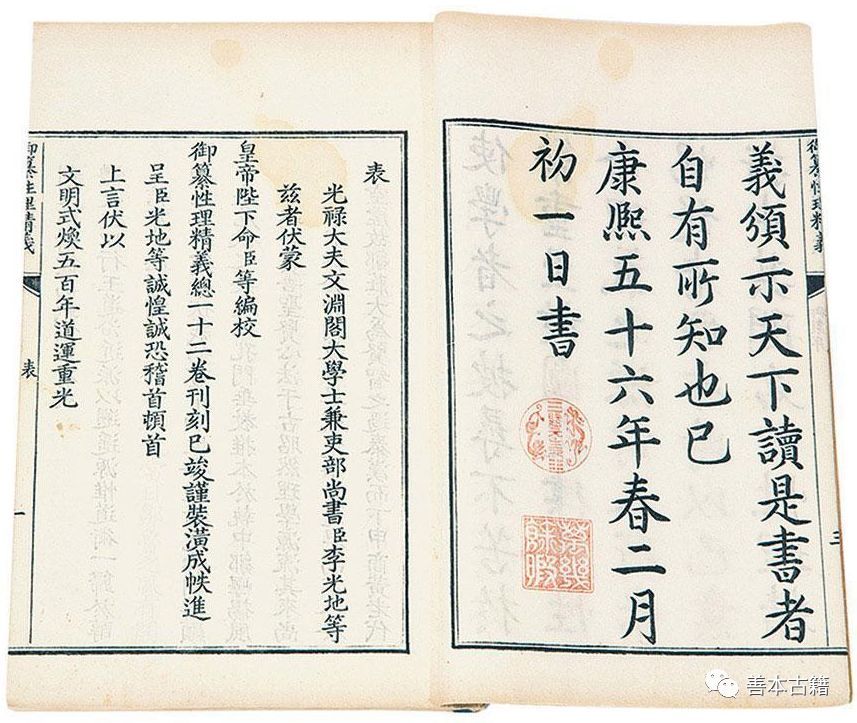 義頒示天下讀是書者
自有所知也已
康熙五十六年春二月
初一日書
三
萬幾餘暇
御纂性理精義
表
光祿大夫文淵閣大學士兼吏部尚書臣李光地等
兹者伏蒙
皇帝陛下命臣等編校
御纂性理精義總一十二卷刊刻已竣謹裝潢成帙進
呈臣光地等誠惶誠恐稽首頓首
上言伏以
文明式煥五百年道運重光
御纂性理精義
表
一
善本古籍